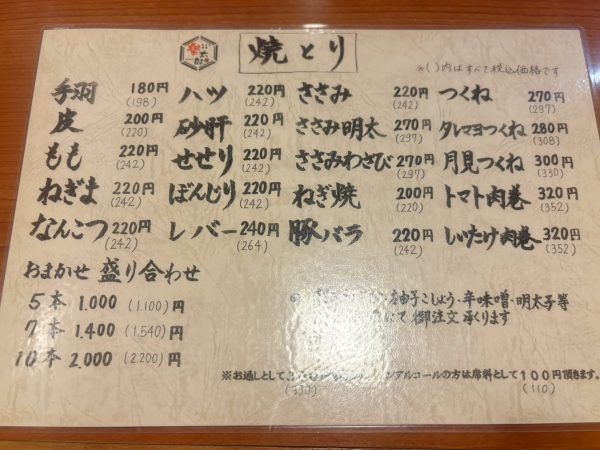 焼とり
※( )内はすべて税込価格です
手羽 180円 (198)
皮 200円 (220)
もも 220円 (242)
ねぎま 220円 (242)
なんこつ 220円 (242)
ハツ 220円 (242)
砂肝 220円 (242)
せせり 220円 (242)
ぼんじり 220円 (242)
レバー 240円 (264)
ささみ 220円 (242)
ささみ明太 270円 (297)
ささみわさび 270円 (297)
ねぎ焼 200円 (220)
豚バラ 220円 (242)
つくね 270円 (297)
タレマヨつくね 280円 (308)
月見つくね 300円 (330)
トマト肉巻 320円 (352)
しいたけ肉巻 320円 (352)
おまかせ 盛り合わせ
5本 1.000 (1.100)円
7本 1.400 (1.540)円
10本 2.000 (2.200)円
こしょう・辛味噌・明太子等
にて 御注文 承くります
※お通しとして
アルコールの方は席料として100円頂きます。
(330)
(110)